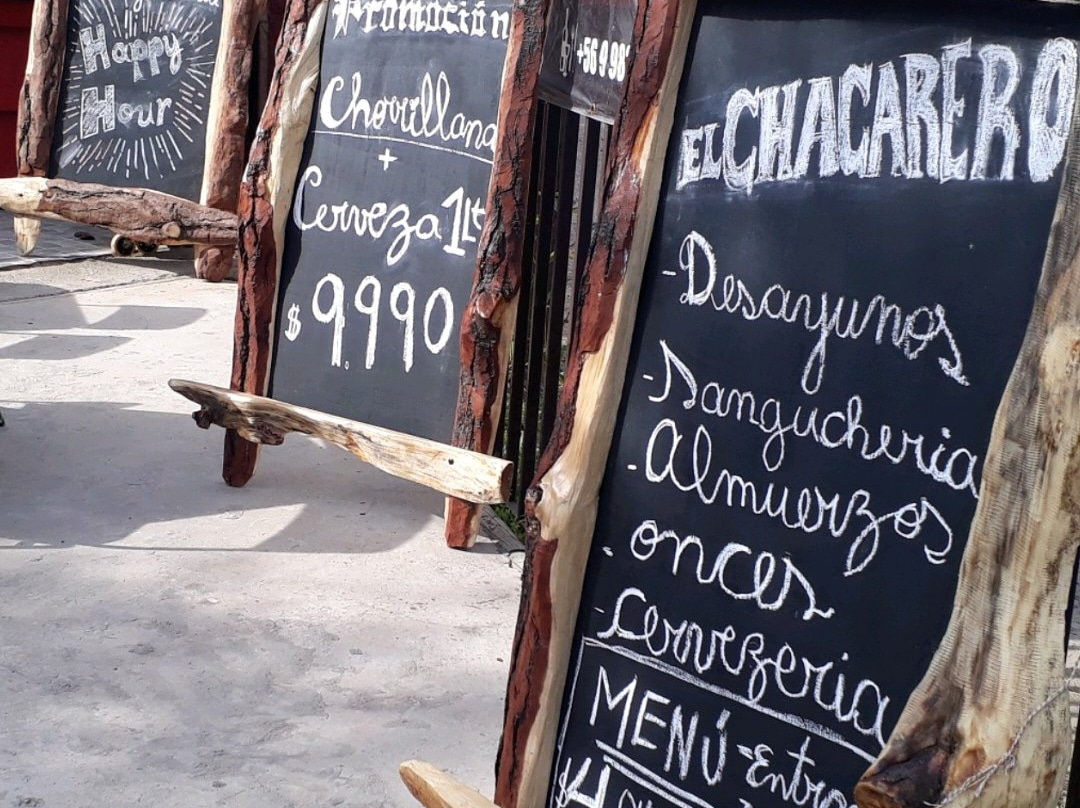 Happy
Hour
Promoción
Chorrillana
+
Cerveza 1Lt
$ 9.990
+56 9 98
EL CHACARERO
-Desayunos
-Sangucheria
-Almuerzos
-onces
-Cervezeria
MENÚ -Entra
$4